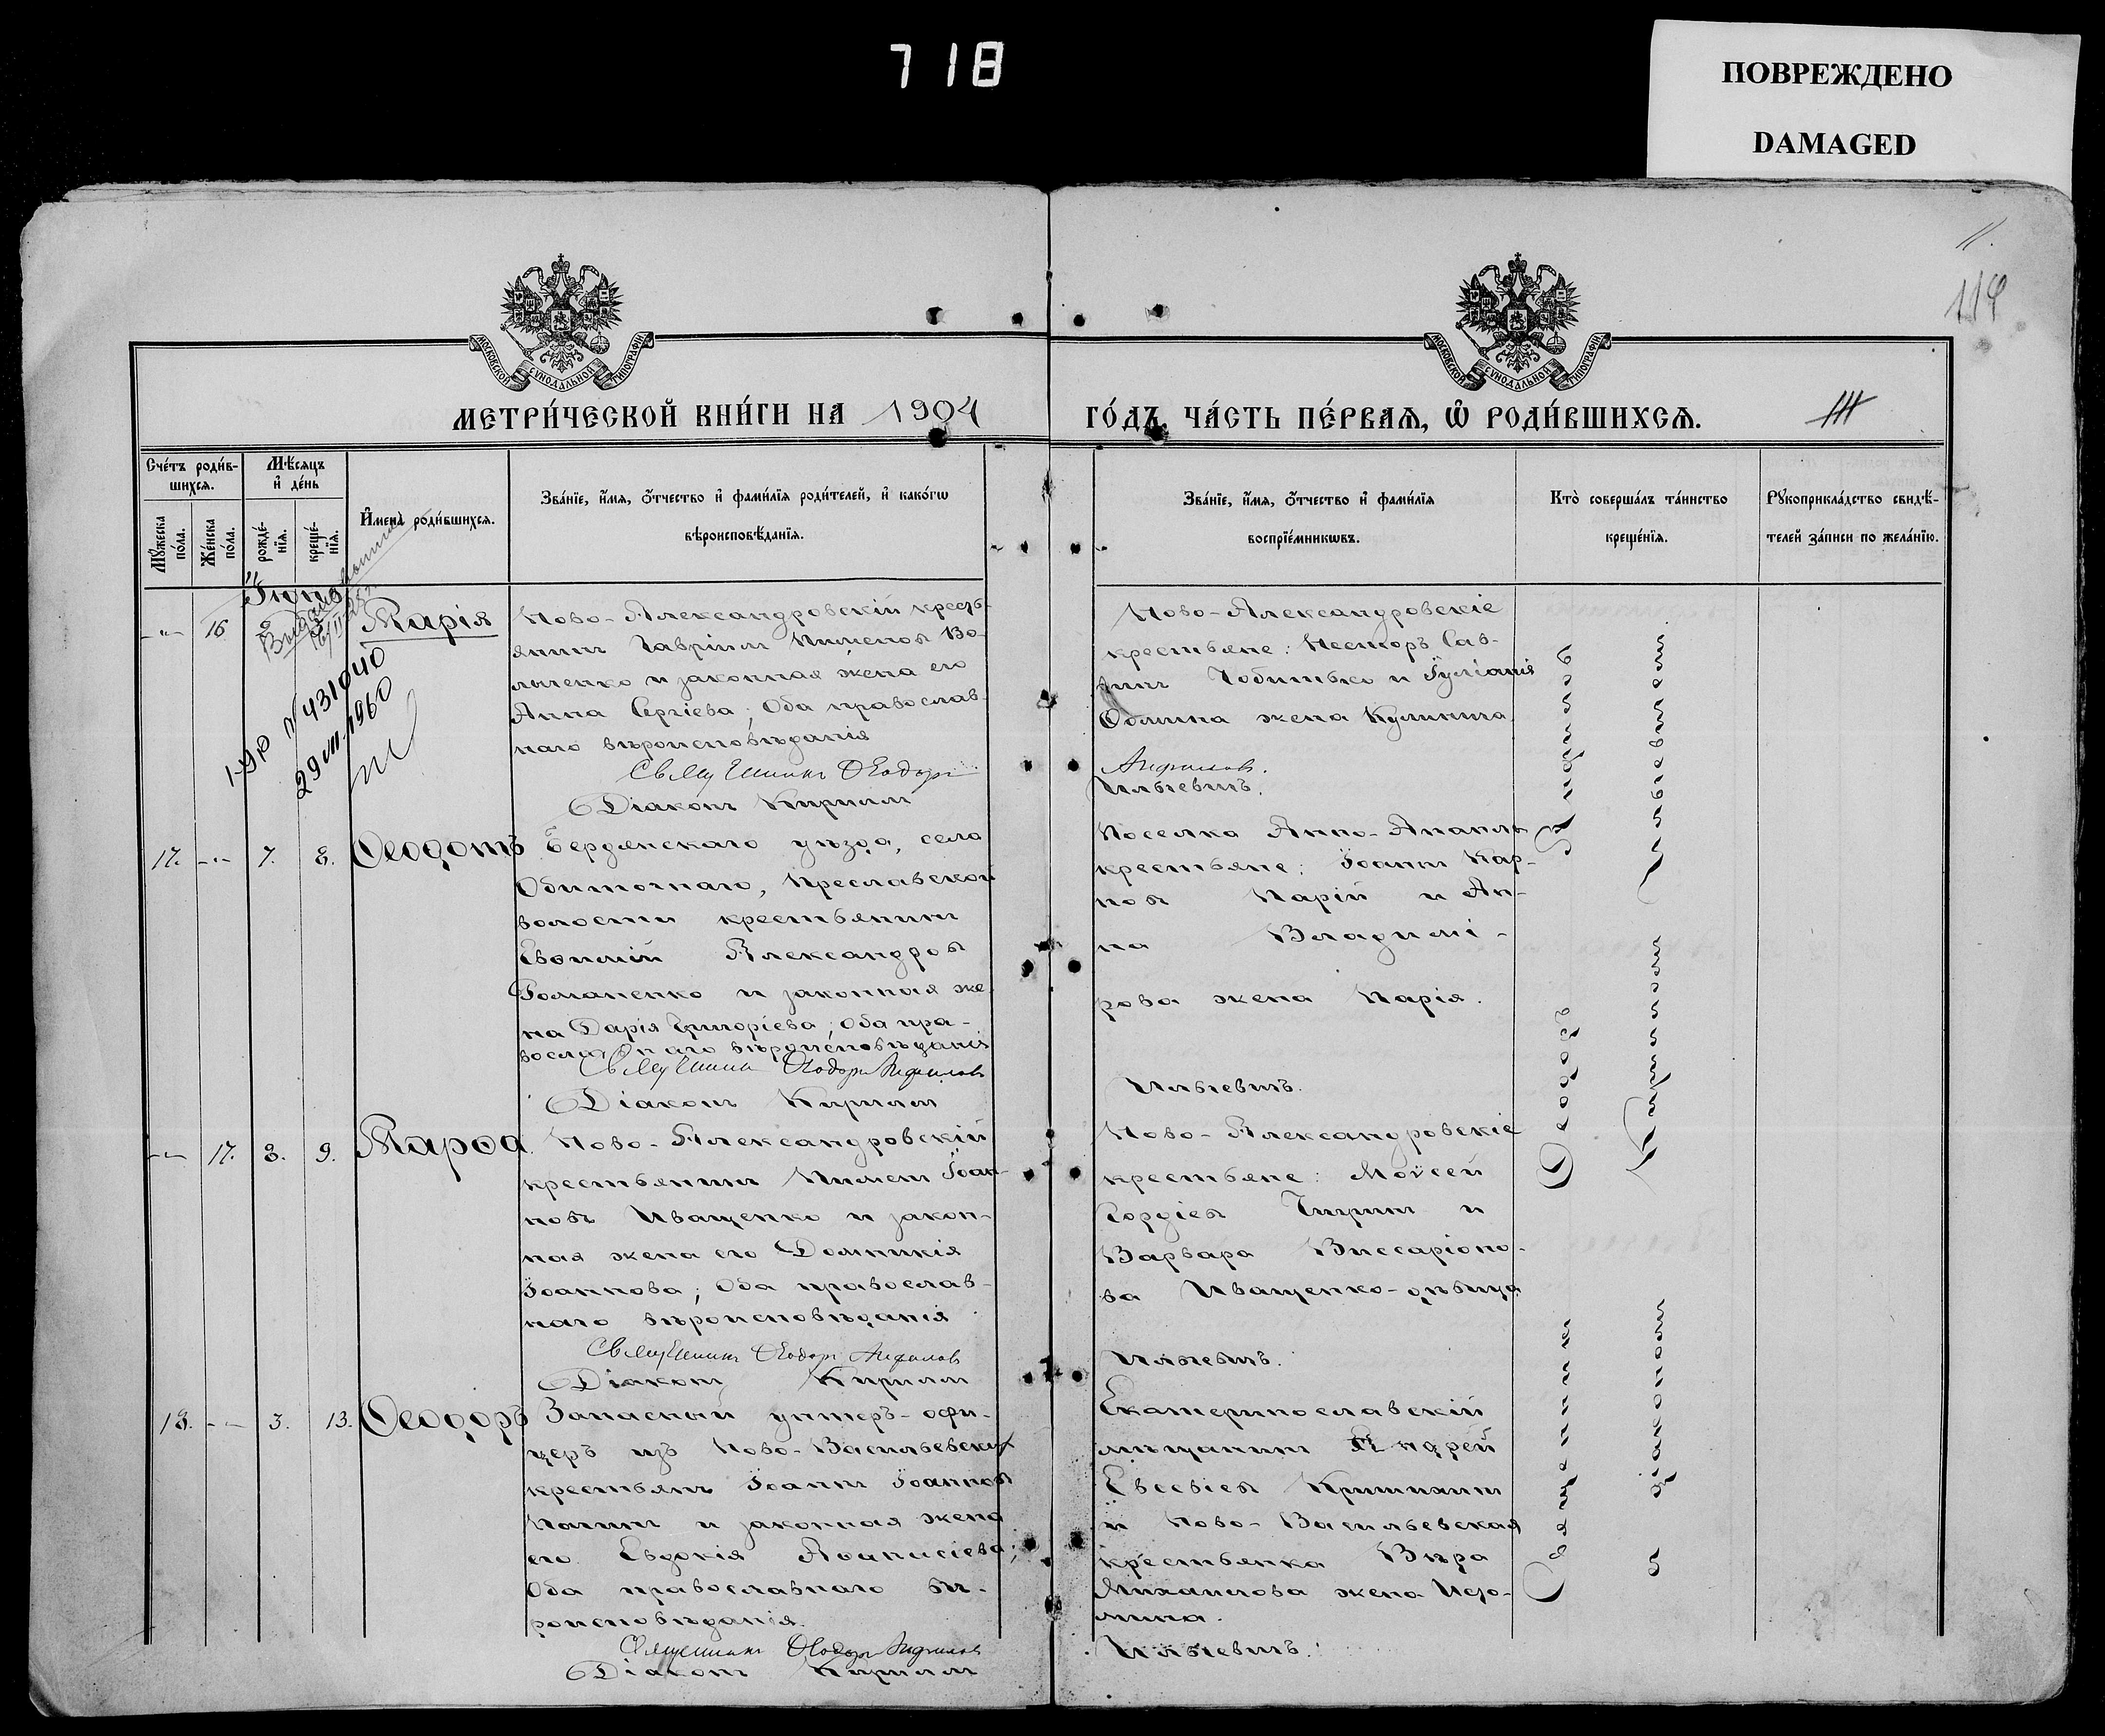 718
ПОВРЕЖДЕНО
DAMAGED
11.
МОСКОВСКОЙ СѴНОДАЛЬНОЙ ТИПОГРАФІИ
МОСКОВСКОЙ СѴНОДАЛЬНОЙ ТИПОГРАФІИ
МЕТРИ́ЧЕСКОЙ КНИ́ГИ НА 1904
ГО́ДЪ, ЧА́СТЬ ПЕ́РВАѦ, Ѡ҆ РОДИ́ВШИХСѦ.
Сче́тъ роди́в-
шихсѧ.
Мꙋ́жеска по́ла.
Же́нска по́ла.
Мѣ́сѧцъ
и҆ де́нь
рожде́-
нїѧ.
креще́-
нїѧ.
И҆мена̀ роди́вшихсѧ.
Зва́нїе, и҆́мѧ, ѻ҆́тчество и҆ фами́лїѧ роди́телей, и҆ како́гѡ
вѣроисповѣ́данїѧ.
Зва́нїе, и҆́мѧ, ѻ҆́тчество и҆ фами́лїѧ
воспрїе́мникѡвъ.
Кто̀ соверша́лъ та́инство
креще́нїѧ.
Рꙋкоприкла́дство свидѣ́-
телей за́писи по жела́нїю.
Іюнь
-"- 16 2 3 Марія
№ 431040
29 VII. 1960
Ново-Александровскій кресть-
янинъ Гавріилъ Пименовъ Во-
лыченко и законная жена его
Анна Сергіева; Оба православ-
наго вѣроисповѣданія
Священникъ Ѳеодоръ
Діаконъ Кириллъ
Ново-Александровскіе
крестьяне: Несторъ Сав-
Іуліанія
жена
Анфиловъ.
Ильевичъ.
17. -"- 7. 8. Ѳеодотъ
Бердянскаго уѣзда, село
Обиточнаго, Преславской
волости крестьянинъ
Евѳимій Александровъ
Романенко и законная же-
на Дарія Григоріева; Оба пра-
вославнаго вѣроисповѣданія
Священникъ Ѳеодоръ Анфиловъ
Діаконъ Кириллъ
Поселка Анно-
крестьяне: Іоаннъ Кар-
повъ Царій и Ан-
на Владимі-
рова жена Царія.
Ильевичъ.
-"- 17. 8. 9. Марѳа
Ново-Александровскій
крестьянинъ Пименъ Іоан-
новъ Иващенко и закон-
ная жена его Домникія
Іоаннова; Оба православ-
наго вѣроисповѣданія
Священникъ Ѳеодоръ Анфиловъ
Діаконъ Кириллъ
Ново-Александровскіе
крестьяне: Моѵсей
Гордіевъ Чигринъ и
Варвара Виссаріоно-
ва Иващенко-дѣвица
Ильевичъ.
18. -"- 3. 13. Ѳеодоръ
Запасный унтеръ-офи-
церъ изъ Ново-Васильевскихъ
крестьянъ Іоаннъ Іоанновъ
и законная жена
его Евдокія Аѳанасіева;
Оба православнаго вѣ-
роисповѣданія.
Священникъ Ѳеодоръ Анфиловъ
Діаконъ Кириллъ
Екатеринославскій
мѣщанинъ Андрей
Евсевіевъ
и Ново-Васильевская
крестьянка Вѣра
Михаилова жена
Ильевичъ.
Священникъ Ѳеодоръ Анфиловъ
съ діакономъ Кирилломъ Ильевичемъ